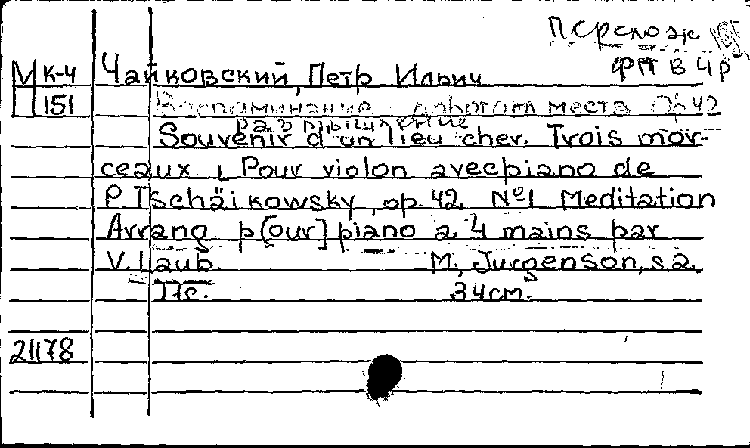 Перелож
фп в 4 р
М К-4 Чайковский, Петр Ильич
П 151 Воспоминание дорогом месте Op 42
размышление
Souvenir d'un lieu cher. Trois mor-
ceaux Pour violon avec piano de
P. Tschäikowsky, op 42. №1 Meditation
Arrang p[our] piano a 4 mains par
V. Laub. M., Jurgenson, s.a.
17с. 34см.
21178